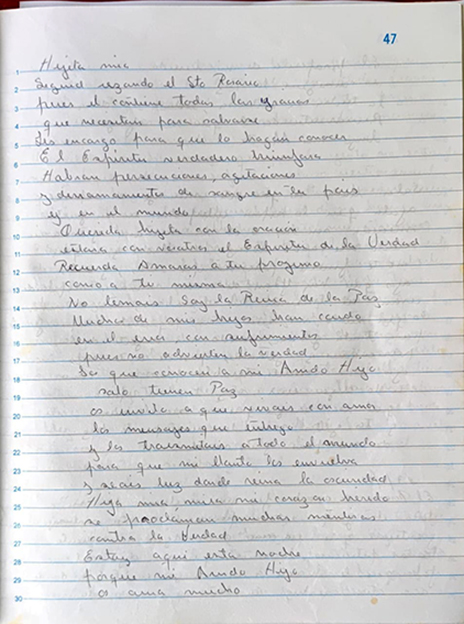 47
Hijita mia
Seguid rezando el Sto Rosario
pues el contiene todas las gracias
que necesitan para salvarse
Les encargo para que lo hagan conocer
El Espíritu verdadero triunfara
Habran persecuciones, agitaciones
y derramamientos de sangre en tu pais
y en el mundo
Querida hijita con la oración
estara con vosotros el Espiritu de la Verdad
Recuerda Amaras a tu projimo
como a ti misma
No temais Soy la Reina de la Paz
Muchos de mis hijos han caido
en el error con sufrimientos
pues no advierten la verdad
Los que conocen a mi Amado Hijo
solo tienen Paz
os invito a que vivais con amor
los mensajes que entrego
y los transmitais a todo el mundo
para que mi manto los envuelva
y seais luz donde reina la oscuridad
Hija mia mira mi corazon herido
se proclaman muchas mentiras
contra la Verdad
Estoy aqui esta noche
porque mi Amado Hijo
os ama mucho